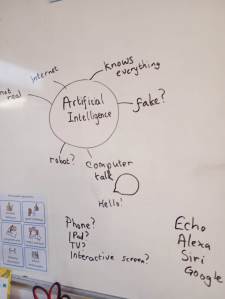 internet
knows
everything
not
real
Artifical
Intelligence
fake?
robot?
computer
talk
Hello!
Phone?
iPad?
TV?
Interactive screen?
Echo
Alexa
Siri
Google